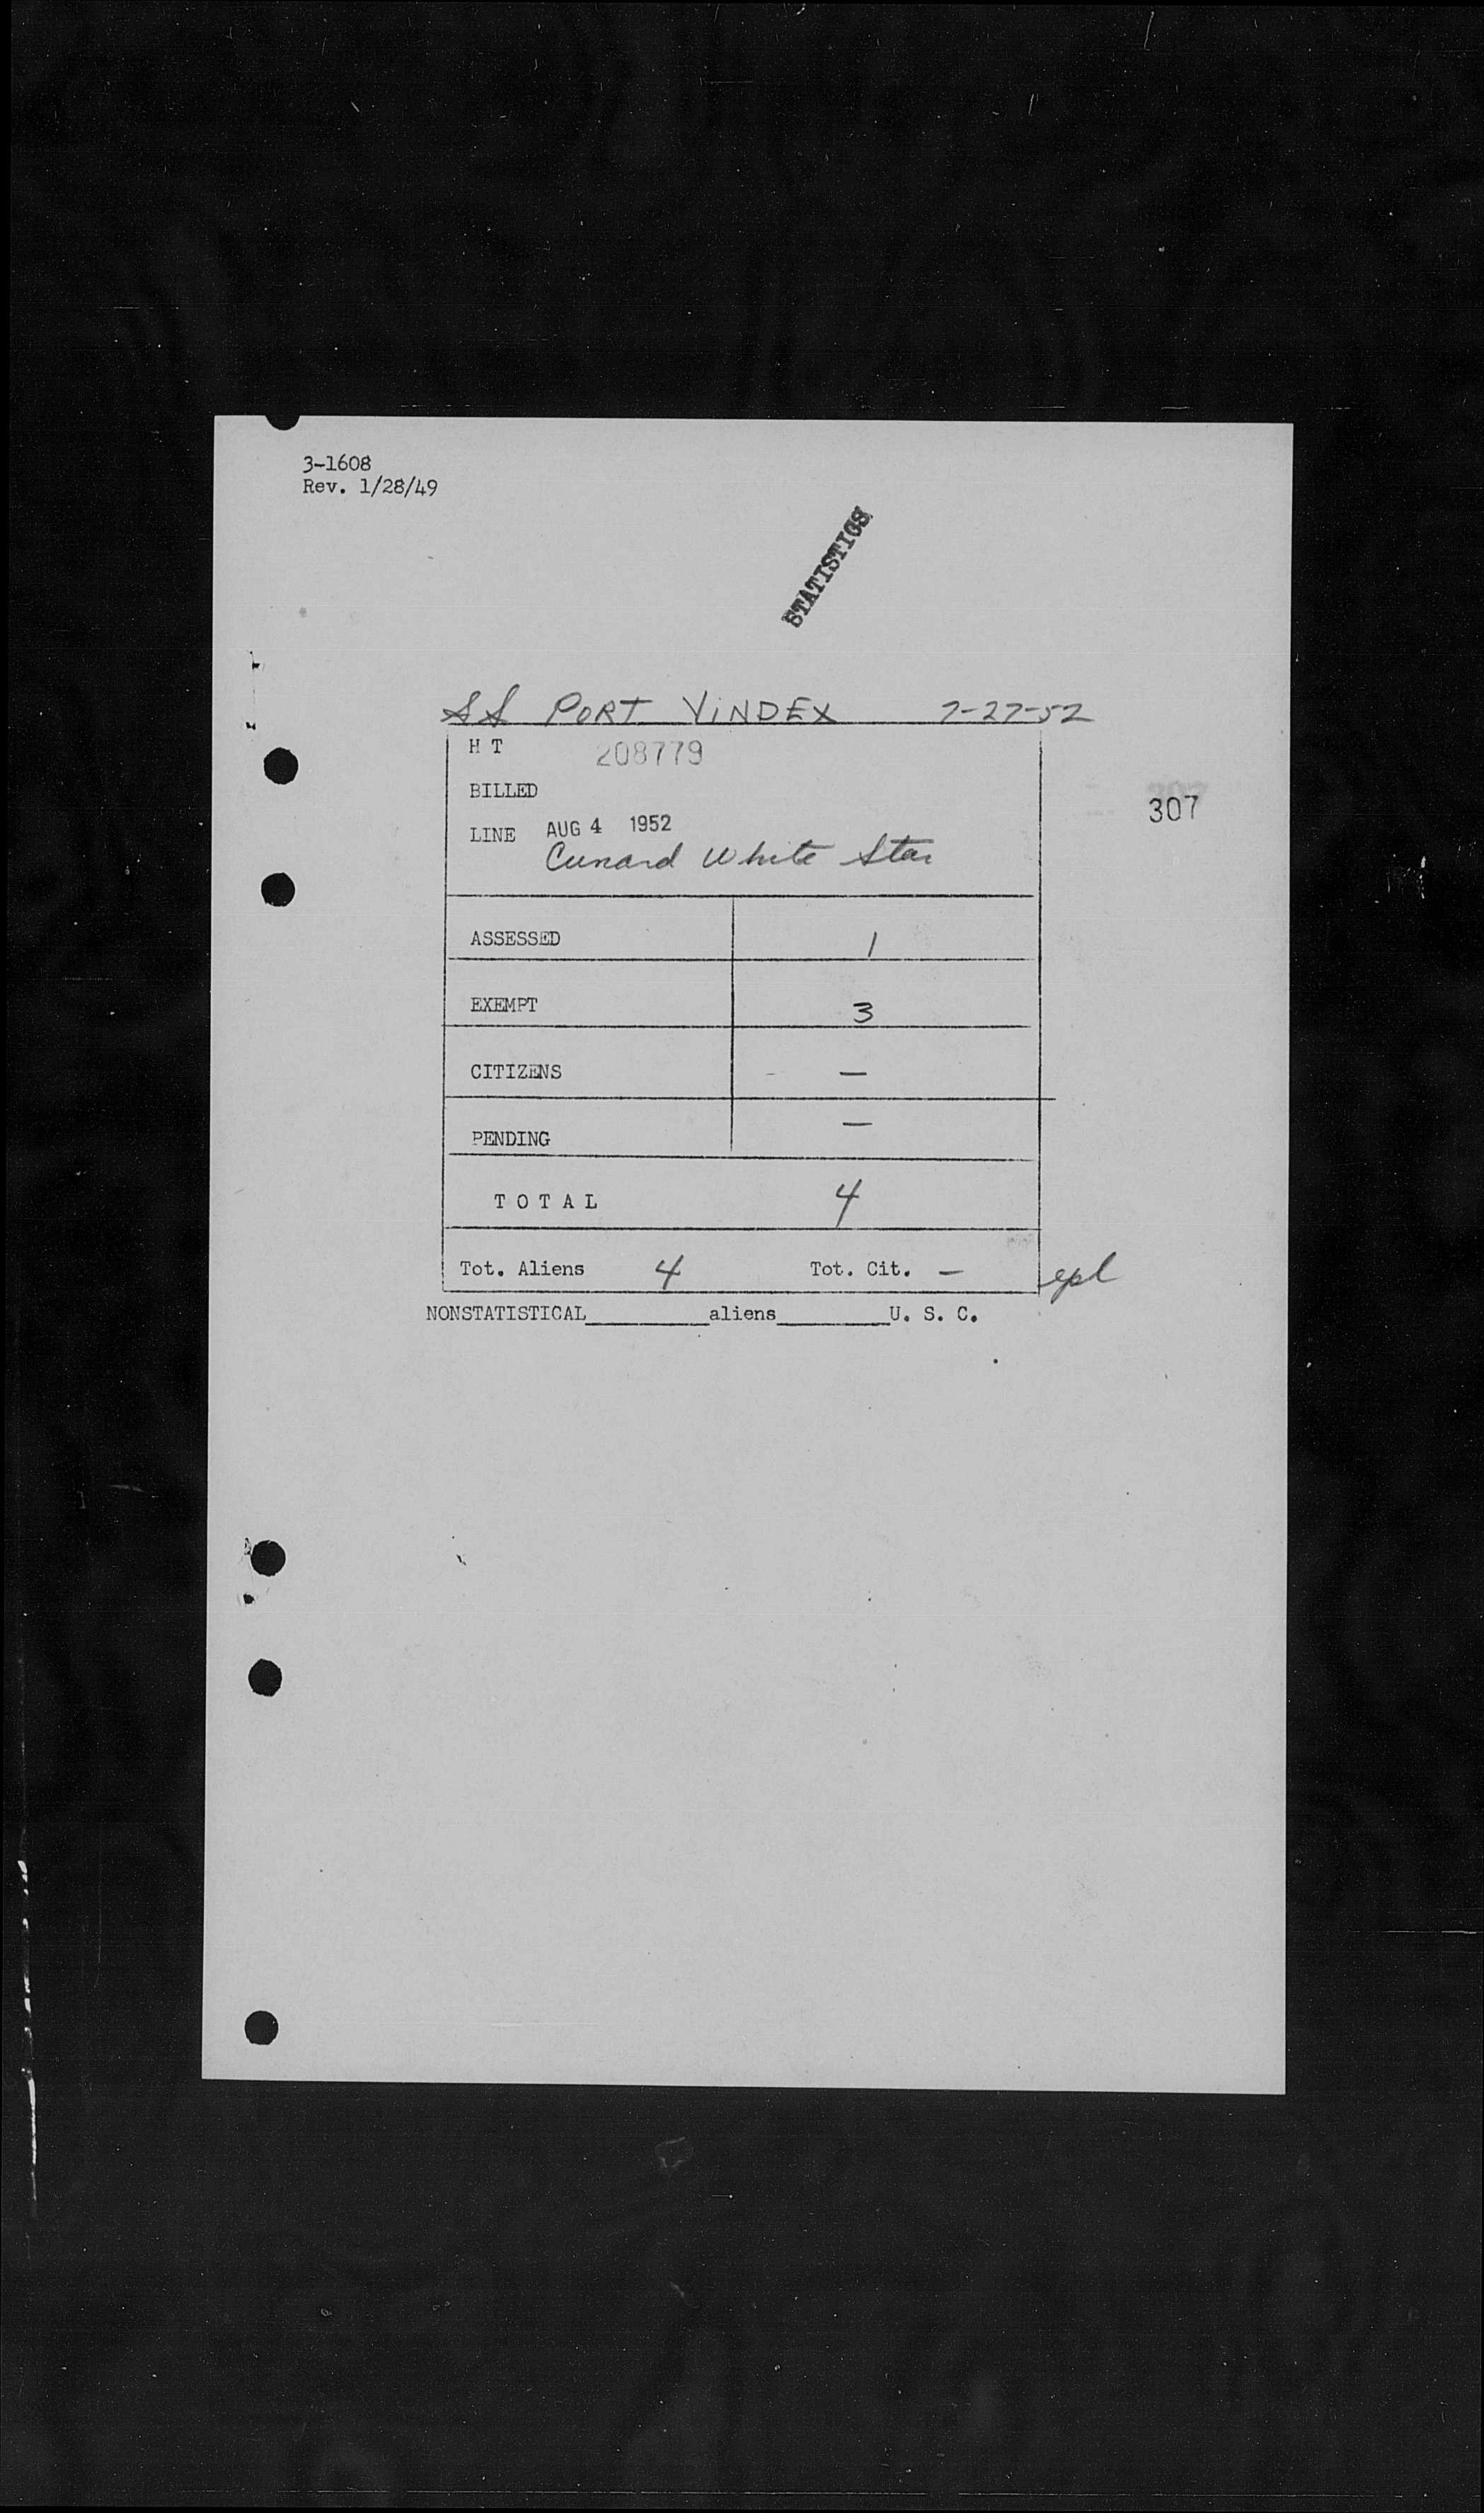 3-1608
Rev. 1/28/49
STATISTICS
SS PORT VINDEX 7-27-52
H T 208779
BILLED
307
LINE AUG 4 1952
Cunard White Star
ASSESSED 1
EXEMPT 3
CITIZENS —
PENDING —
T O T A L 4
Tot. Aliens 4 Tot. Cit. — epl
NONSTATISTICAL__________aliens_________U. S. C.